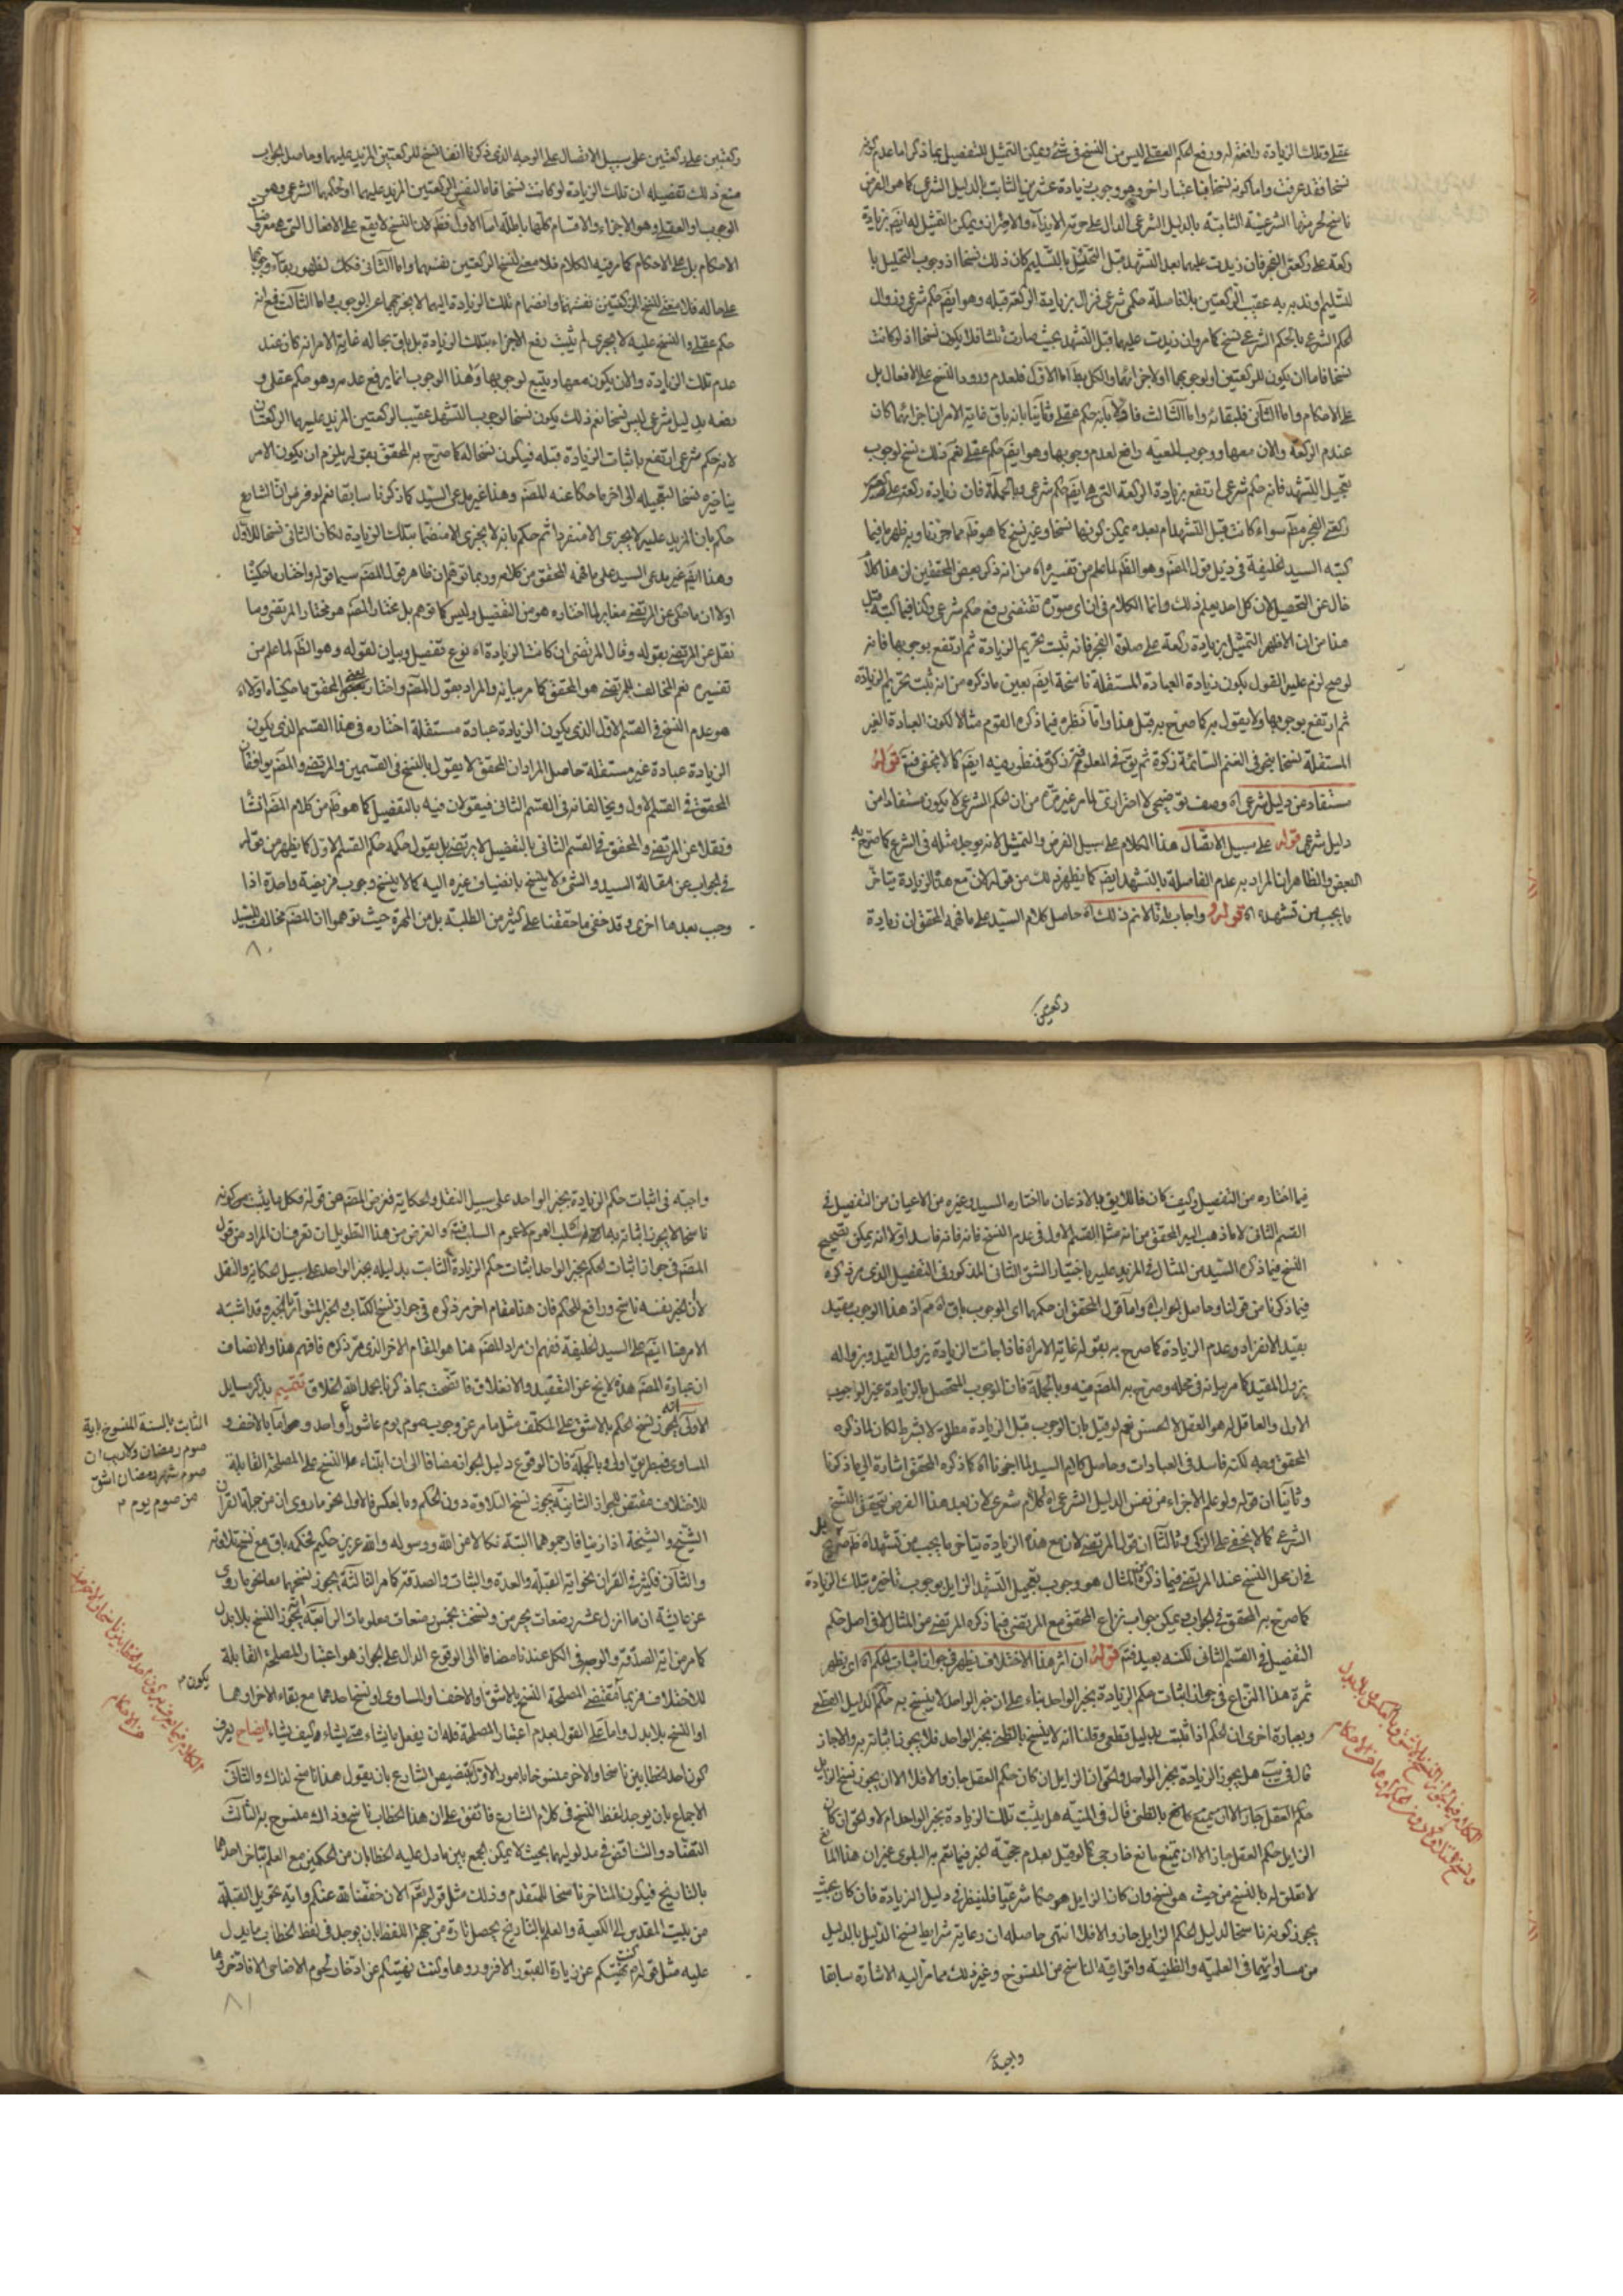 عقلي وتلك الزيادة رافعة له ورفع الحكم العقلي ليس من النسخ في شئ ويمكن التمثيل للتفصيل بما ذكر اما عدم كونه
نسخا فقد عرفت واما كونه نسخا فباعتبار اخر وهو وجوب زيادة عشرين الثابت بالدليل الشرعي كما هو الفرض
ناسخ لحرمتها الشرعية الثابتة بالدليل الشرعي الدال على حرمة الايذاء والاضرار ويمكن التمثيل له ايضا بزيادة
ركعة على ركعتي الفجر فان زيدت عليهما بعد التشهد قبل التحليل بالتسليم كان ذلك نسخا اذ وجوب التحليل با
لتسليم او ندبيه عقيب الركعتين بلا فاصلة حكم شرعي فزال بزيادة الركعة قبله وهو ايضا حكم شرعي وزوال
الحكم الشرعي بالحكم الشرعي نسخ كما مر وان زيدت عليهما قبل التشهد بحيث صارت ثلثا فلا يكون نسخا اذ لو كانت
نسخا فاما ان يكون للركعتين او لوجوبهما او لاجزائهما والكل بط اما الاول فلعدم ورود النسخ على الافعال بل
على الاحكام واما الثاني فلبقائه واما الثالث فاولا بانه حكم عقلي وثانيا بانه باق غاية الامر ان اجزائهما كان
عند عدم الركعة والان معها ووجوب المعية رافع لعدم وجوبها وهو ايضا حكم عقلي نعم ذلك نسخ لوجوب
تعجيل التشهد فانه حكم شرعي ارتفع بزيادة الركعة التي هي ايضا حكم شرعي وبالجملة فان زيادة ركعة على
ركعتي الفجر مطلقا سواء كانت قبل التشهد ام بعده يمكن كونها نسخا وغير نسخ كما هو ظ مما حررنا وبه ظهر ما فيما
كتبه السيد الخليفة في ذيل قول المصنف وهو الظ لما علم من تفسيره اه من انه ذكر بعض المحققين ان هذا كلام
خال عن التحصيل لان كل احد يعلم ذلك وانما الكلام في ان اي صورة تقتضي رفع حكم شرعي وكذا فيما كتبه قبل
هذا من ان الاظهر التمثيل بزيادة ركعة على صلوة الفجر فانه ثبت تحريم الزيادة ثم ارتفع بوجوبها فانه
لو صح لزم عليه القول بكون زيادة العبادة المستقلة ناسخة ايضا بعين ما ذكره من انه ثبت تحريم الزيادة
ثم ارتفع بوجوبها ولا يقول به كما صرح به قبل هذا واما نظره فيما ذكره القوم مثالا لكون العبادة الغير
المستقلة نسخا بنحو في الغنم السائمة زكوة ثم يق في المعلوفة زكوة فمنظور فيه ايضا كما لا يخفى فتم قوله
مستفاد من دليل شرعي اه وصف توضيحي لا احترازي لما مر غير مرة من ان الحكم الشرعي لا يكون مستفادا من
دليل شرعي قوله على سبيل الاتصال هذا الكلام على سبيل الفرض والتمثيل لانه يوجد مثله في الشرع كما صرح به
البعض والظاهر ان المراد به عدم الفاصلة بالتشهد ايضا كما يظهر ذلك من قوله لان مع هذه الزيادة يتاخر
ما يجب من تشهده اه قوله واجاب بانا لا نم ذلك اه حاصل كلام السيد على ما فهمه المحقق ان زيادة
ركعتين
ركعتين على ركعتين على سبيل الاتصال على الوجه الذي ذكرنا انفا نسخ للركعتين المزيد عليهما وحاصل الجواب
منع ذلك تفصيله ان تلك الزيادة لو كانت نسخا فاما لنفس الركعتين المزيد عليهما او لحكمهما الشرعي وهو
الوجوب او العقلي وهو الاجزاء والاقسام كلها باطلة اما الاول فظ لان النسخ لا يقع على الافعال التي هي معروضات
الاحكام بل على الاحكام كما مر فيه الكلام فلا معنى لنسخ الركعتين نفسهما واما الثاني فكك لظهور بقاء وجوبهما
على حاله فلا معنى لنسخ الركعتين نفسهما وانضمام تلك الزيادة اليهما لا يخرجهما عن الوجوب واما الثالث فمع انه
حكم عقلي والنسخ عليه لا يجري لم يثبت رفع الاجزاء بتلك الزيادة بل باق بحاله غاية الامر انه كان عند
عدم تلك الزيادة والان يكون معها ويتبع لوجوبها وهذا الوجوب انما يرفع عدمه وهو حكم عقلي و
رفعه بدليل شرعي ليس نسخا نعم ذلك يكون نسخا لوجوب التشهد عقيب الركعتين المزيد عليهما الركعتان
لانه حكم شرعي ارتفع باثبات الزيادة قبله فيكون نسخا له كما صرح به المحقق بقوله يلزم ان يكون الامر
بتاخيره نسخا لتعجيله الى اخر ما حكاه عنه المصنف وهذا غير بدعى السيد كما ذكرنا سابقا نعم لو فرض ان الشارع
حكم بان المزيد عليه لا يجزي الا منفردا ثم حكم بانه لا يجزي الا منضما بتلك الزيادة لكان الثاني نسخا للاول
وهذا ايضا غير بدعى السيد على ما فهمه المحقق من كلامه وربما توهم ان ظاهر قول المصنف سيما قوله واختار ما حكينا
اولا ان ما حكى عن المرتضى مغاير لما اختاره هو من التفصيل وليس كما توهم بل مختار المصنف هو مختار المرتضى وما
نقل عن المرتضى بقوله وقال المرتضى ان كانت الزيادة اه نوع تفصيل وبيان لقوله وهو الظ لما علم من
تفسيره نعم المخالف للمرتضى هو المحقق كما مر بيانه والمراد بقول المصنف واختار بعض المحقق ما حكيناه اولا
هو عدم النسخ في القسم الاول الذي يكون الزيادة عبادة مستقلة اختاره في هذا القسم الذي يكون
الزيادة عبادة غير مستقلة حاصل المراد ان المحقق لا يقول بالنسخ في القسمين والمرتضى والمصنف يوافقان
المحقق في القسم الاول ويخالفانه في القسم الثاني فيقولان فيه بالتفصيل كما هو ظ من كلام المصنف انشاء
ونقلا عن المرتضى والمحقق في القسم الثاني بالتفصيل لا يرتضي بل يقول حكمه حكم القسم الاول كما يظهر من قوله
في الجواب عن مقالة السيد والشئ لا ينسخ بانضياف غيره اليه كما لا ينسخ وجوب فريضة واحدة اذا
وجب بعدها اخرى وقد خفى ما حققنا على كثير من الطلبة بل من المهرة حيث توهموا ان المصنف مخالف للسيد
٨٠
فيما اختاره من التفصيل وكيف كان فاللايق بالاذعان ما اختاره السيد وغيره من الاعيان من التفصيل في
القسم الثاني لا ما ذهب اليه المحقق من انه مثل القسم الاول في عدم النسخ فانه فاسد اولا انه يمكن تصحيح
النسخ فيما ذكره السيد من المثال في المزيد عليه باختيار الشق الثاني المذكور في التفصيل الذي مر ذكره
فيما ذكرنا من قولنا وحاصل الجواب اه واما قول المحقق ان حكمهما اي الوجوب باق اه فم اذ هذا الوجوب مقيد
بقيد الانفراد وعدم الزيادة كما صرح به بقوله غاية الامر اه فاذا جائت الزيادة يزول القيد وبزواله
يزول المقيد كما مر بيانه في محله وصرح به المصنف فيه وبالجملة فان الوجوب المتحصل بالزيادة غير الواجب
الاول والعاقل له هو العقل لا الحسن نعم لو قيل بان الوجوب قبل الزيادة مطلق لا بشرط لكان لما ذكره
المحقق وجه لكنه فاسد في العبادات وحاصل كلام السيد لما اخبرناه اه كما ذكره المحقق اشارة الى ما ذكرنا
وثانيا ان قوله ولو علم الاجزاء من نفس الدليل الشرعي اه كلام شعري لان بعد هذا الفرض يتحقق النسخ
الشرعي كما لا يخفى على الزكي وثالثا ان قول المرتضى لان مع هذه الزيادة يتاخر ما يجب من تشهد اه ظ بل صريح
في ان محل النسخ عند المرتضى فيما ذكره من المثال هو وجوب تعجيل التشهد الزايل بوجوب تاخيره بتلك الزيادة
كما صرح به المحقق في الجواب ويمكن جواب نزاع المحقق مع المرتضى فيما ذكره المرتضى من المثال لا في اصل حكم
التفصيل في القسم الثاني لكنه بعيد فتم قوله ان اثر هذا الاختلاف يظهر في جواز اثبات الحكم اه اي يظهر
ثمرة هذا النزاع في جواز اثبات حكم الزيادة بخبر الواحد بناء على ان خبر الواحد لا ينسخ به حكم الدليل القطعي
وبعبارة اخرى ان الحكم اذا ثبت بدليل قطعي وقلنا انه لا ينسخ بالظني بخبر الواحد فلا يجوز اثباته به والا جاز
قال في يب هل يجوز الزيادة بخبر الواحد والحق ان الزايل ان كان حكم العقل جاز والا فلا الا ان يجوز نسخ الزايل
حكم العقل جاز الا ان يمنع مانع بالظني قال في المنية هل يثبت تلك الزيادة بخبر الواحد ام لا والحق ان كان
الزايل حكم العقل جاز الا ان يمنع مانع خارجي كما لو قيل بعدم حجية الخبر فيما تعم به البلوى غير ان هذا المانع
لا تعلق له بالنسخ من حيث هو نسخ وان كان الزايل هو حكما شرعيا فلينظر في دليل الزيادة فان كان بحيث
يجوز كونه ناسخا لدليل الحكم الزايل جاز والا فلا انتهى حاصله ان رعاية شرايط نسخ الدليل بالدليل
من مساواتهما في العلمية والظنية واقوائية الناسخ من المنسوخ وغير ذلك مما مر اليه الاشارة سابقا
واجبة
واجبة في اثبات حكم الزيادة بخبر الواحد على سبيل النقل والحكاية فغرض المصنف من قوله فكل ما يثبت كونه
ناسخا لا يجوز اثباته به اه سلب العموم لا عموم السلب فتم والغرض من هذا التطويلات تعرف ان المراد من قول
المصنف في جواز اثبات الحكم بخبر الواحد اثبات حكم الزيادة الثابت بدليله بخبر الواحد على سبيل الحكاية والنقل
لان الخبر بنفسه ناسخ ورافع للحكم فان هذا مقام اخر مر ذكره في جواز نسخ الكتاب والخبر المتواتر بالخبر وقد اشتبه
الامر هنا ايضا على السيد الخليفة ففهم ان مراد المصنف هنا هو المقام الاخر الذي مر ذكره فافهم هذا والانصاف
ان عبارة المصنف هذه لا يخ عن التعقيد والانغلاق فاتضحت بما ذكرنا بحمد الله الخلاق تتميم بذكر مسايل
الاولى انه يجوز نسخ الحكم بالاشق على المكلف مثل ما مر عن وجوب صوم يوم عاشورا واحد وصواما بالاخف و
المساوي فبطريق اولى وبالجملة فان الوقوع دليل الجواز مضافا الى ان ابتناء علة النسخ على المصلحة القابلة
للاختلاف مقتض للجواز الثانية يجوز نسخ التلاوة دون الحكم وبالعكس فالاول نحو ما روى ان من جملة القران
الشيخ والشيخة اذا زنيا فارجموهما البتة نكالا من الله ورسوله والله عزيز حكيم فحكمه باق مع نسخ تلاوته
والثاني فكثير في القران نحو اية القبلة والعدة والثبات والصدقة كما مر الثالثة يجوز نسخهما معا نحو ما روى
عن عايشة ان ما انزل عشر رضعات يحرمن ونسخت بخمس رضعات معلومات الرابعة يجوز النسخ بلا بدل
كما مر من اية الصدقة والوجه في الكل عندنا مضافا الى الوقوع الدال على الجواز هو اعتبار المصلحة القابلة
للاختلاف فربما تقتضي المصلحة النسخ بالاشق والاخف او المساوي او نسخ احدهما مع بقاء الاخر او هما
او النسخ بلا بدل واما على القول بعدم اعتبار المصلحة فله ان يفعل ما يشاء متى يشاء وكيف يشاء ايضاح يعرف
كون احد الخطابين ناسخا والاخر منسوخا بامور الاول تنصيص الشارع بان يقول هذا ناسخ لذاك والثاني
الاجماع بان يوجد لفظ النسخ في كلام الشارع فاتفق على ان هذا الخطاب ناسخ وذاك منسوخ به الثالث
التضاد والتناقض في مدلوليهما بحيث لا يمكن الجمع بين ما دل عليه الخطابان من الحكمين مع العلم بتاخر احدهما
بالتاريخ فيكون المتاخر ناسخا للمتقدم وذلك مثل قوله تعم الان خفف الله عنكم واية تحويل القبلة
من بيت المقدس الى الكعبة والعلم بالتاريخ يحصل تارة من جهة اللفظ بان يوجد في لفظ الخطاب ما يدل
عليه مثل قوله كنت نهيتكم عن زيارة القبور الا فزوروها وكنت نهيتكم عن ادخار لحوم الاضاحي الا فادخروها
٨١
الثابت بالسنة المنسوخ باية
صوم رمضان ولاريب ان
صوم شهر رمضان اشق
من صوم يوم م
يكون م